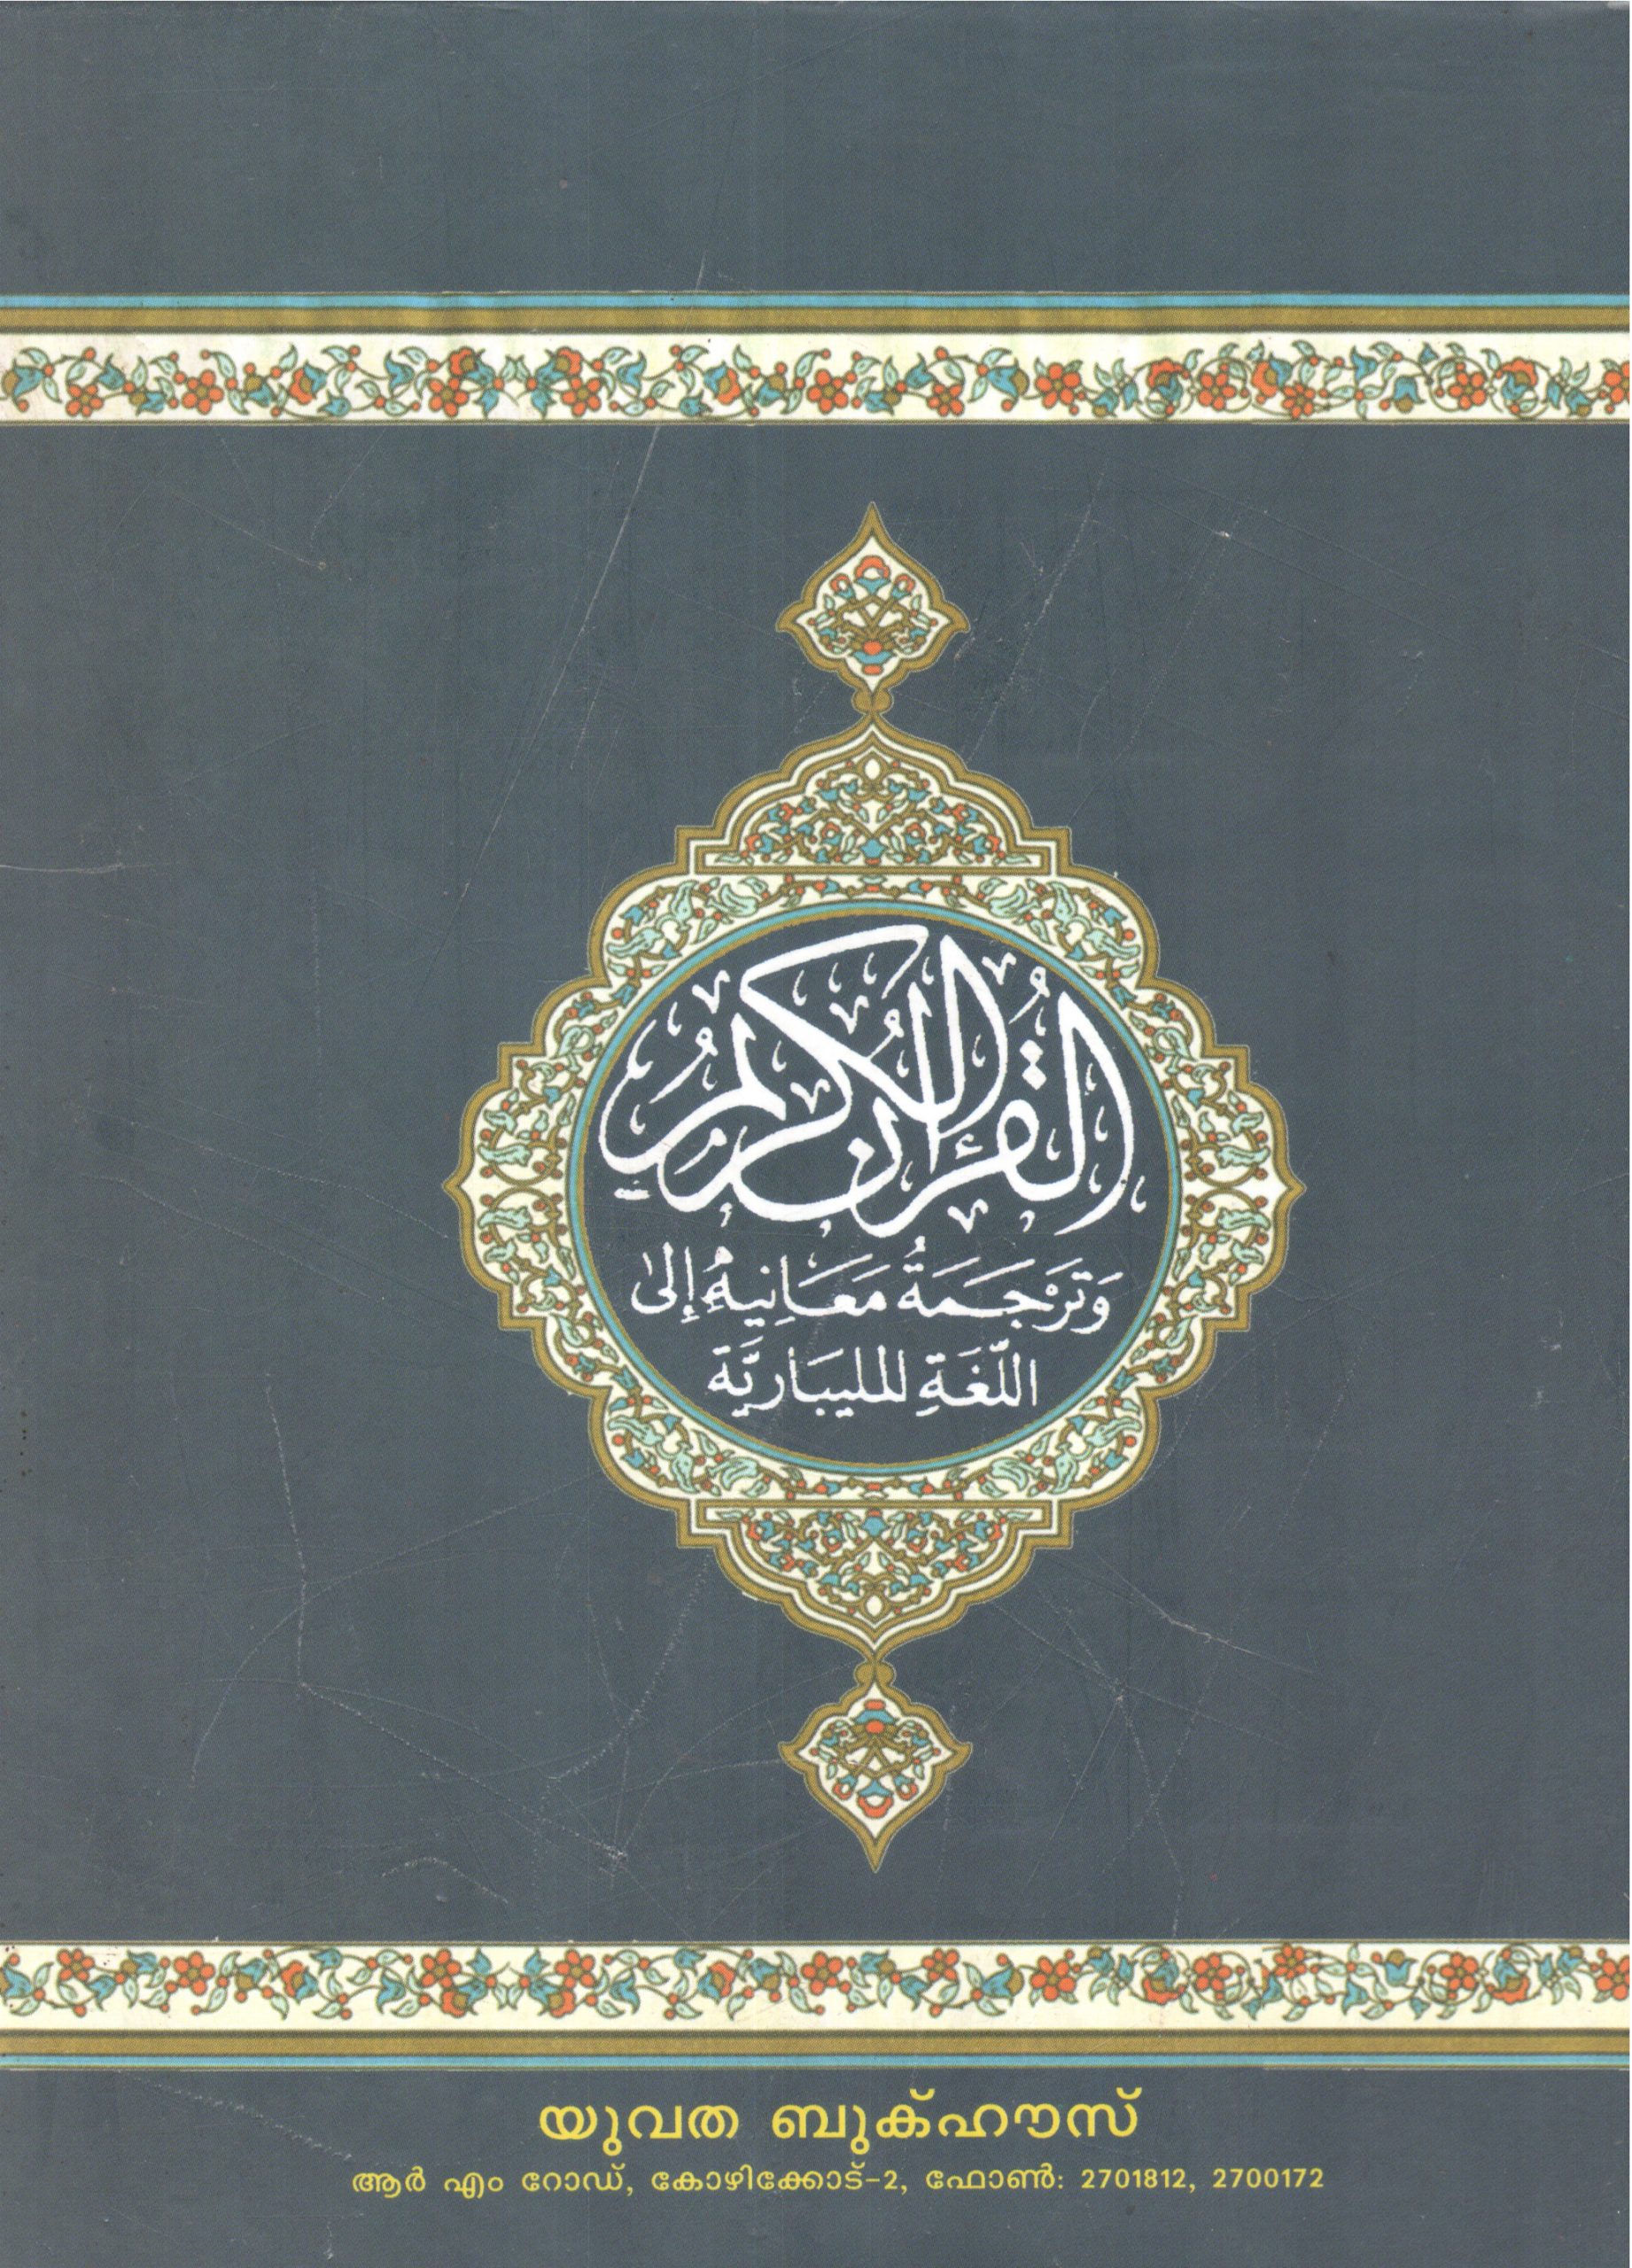 القُرآن الكَريمُ
وَتَرْجَمَةُ مَعَانِيهُ إلىٰ
اللّغَةِ المليبَاريَّة
യുവത ബുക്ഹൗസ്
ആർ എം റോഡ്, കോഴിക്കോട്-2, ഫോൺ: 2701812, 2700172